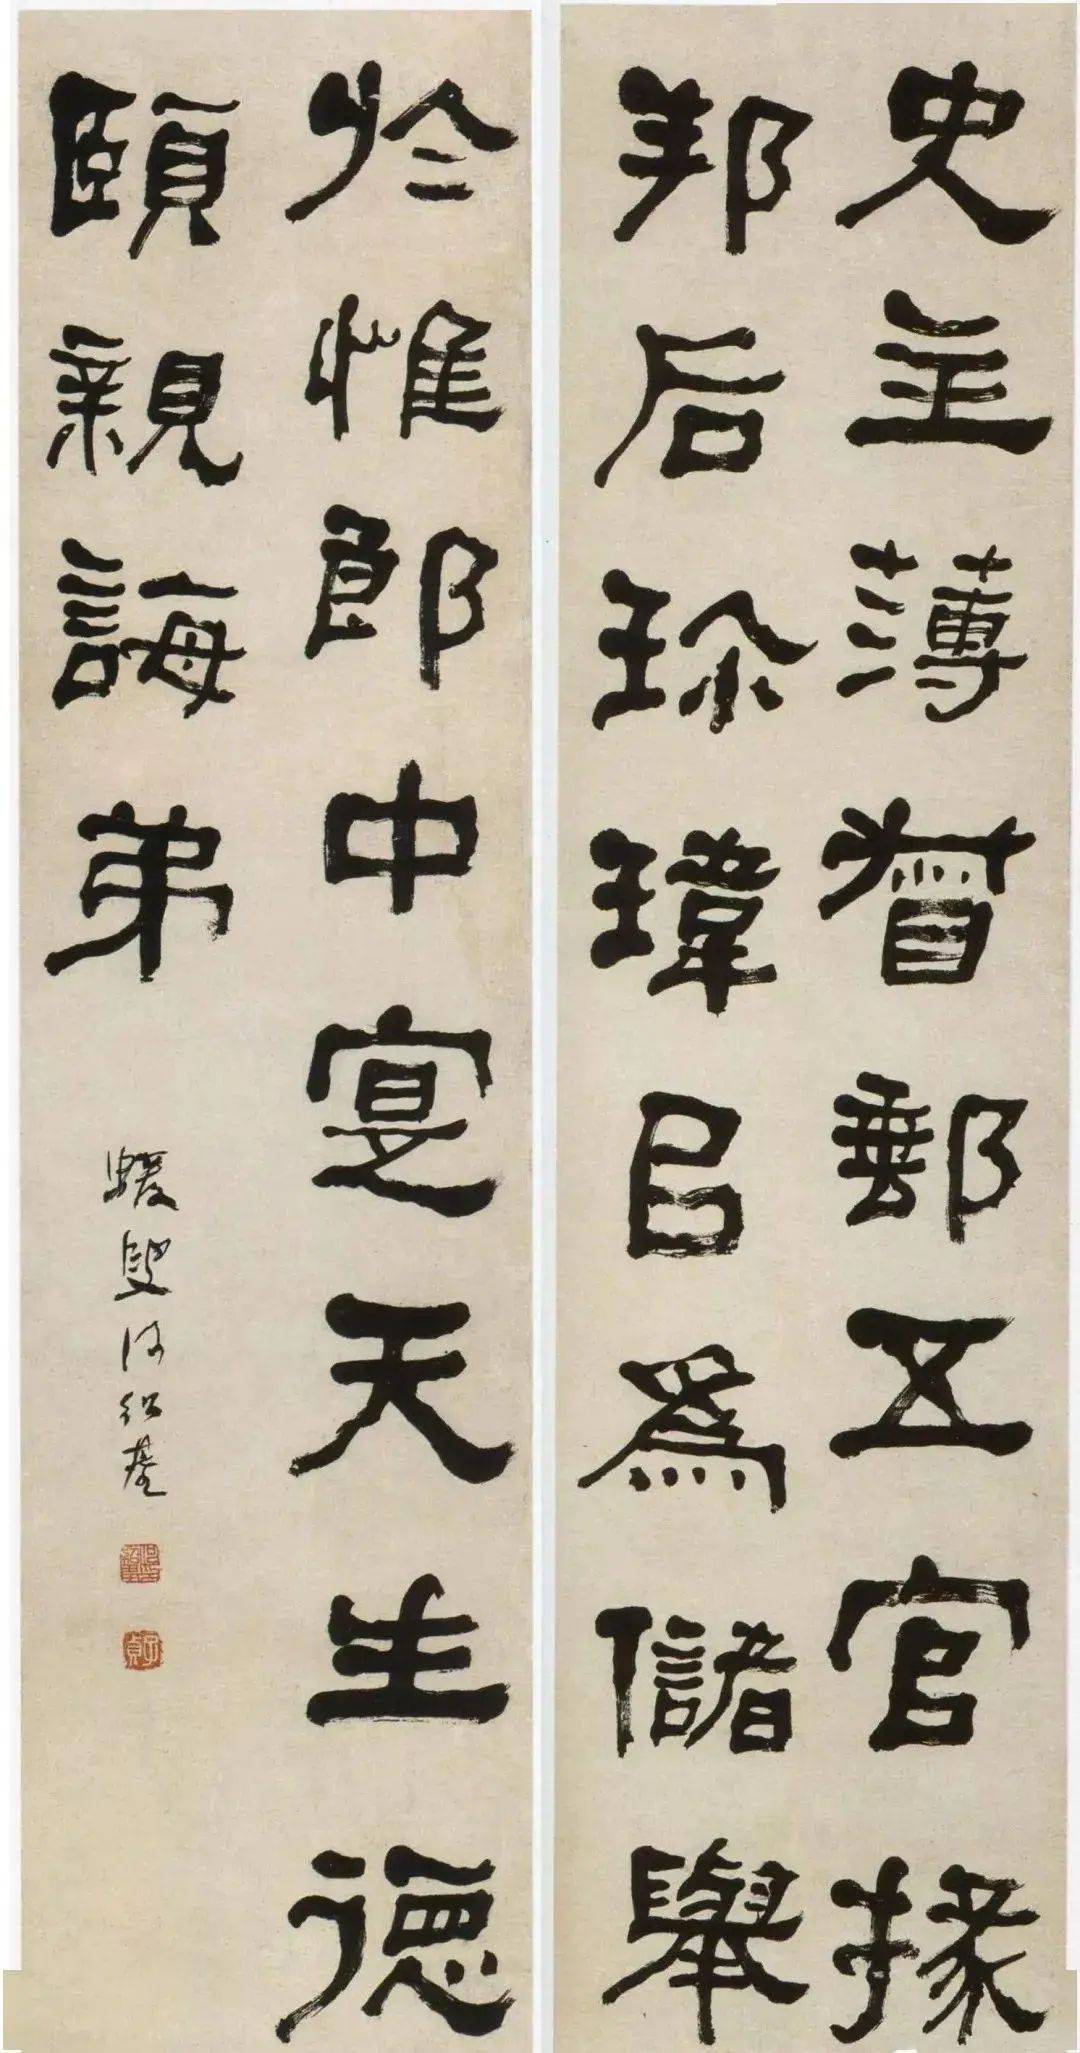 史主薄督郵五官掾
邦后珎瑋㠯為儲舉
於惟郎中寔天生德
頤親誨弟
蝯叟何紹基
子貞